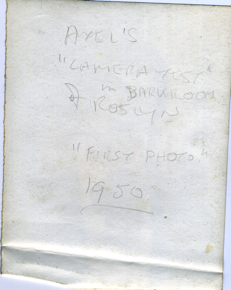 AXEL'S
"CAMERA TEST"
in DARKROOM
of ROSLYN
"FIRST PHOTO"
1950